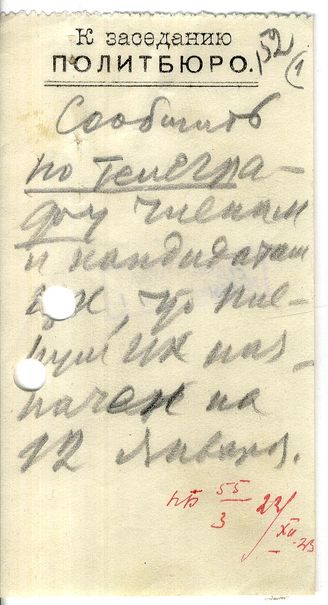 К заседанию
ПОЛИТБЮРО.
152 (1
Сообщить
по телегра-
фу членам
и кандидатам
ЦК, что пле-
нум ЦК наз-
начен на
12 января.
ПБ 55/3 22/XII-23